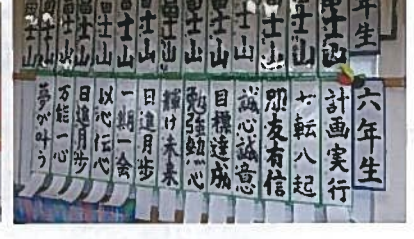 年生
富士山
富士山
富士山
富士山
富士山
富士山
富士山
富士山
富士山
富士山
富士山
富士山
六年生
計画実行
七転八起
朋友有信
誠心誠意
目標達成
勉強熱心
輝け未来
日進月歩
一期一会
以心伝心
日進月歩
万能一心
夢が叶う